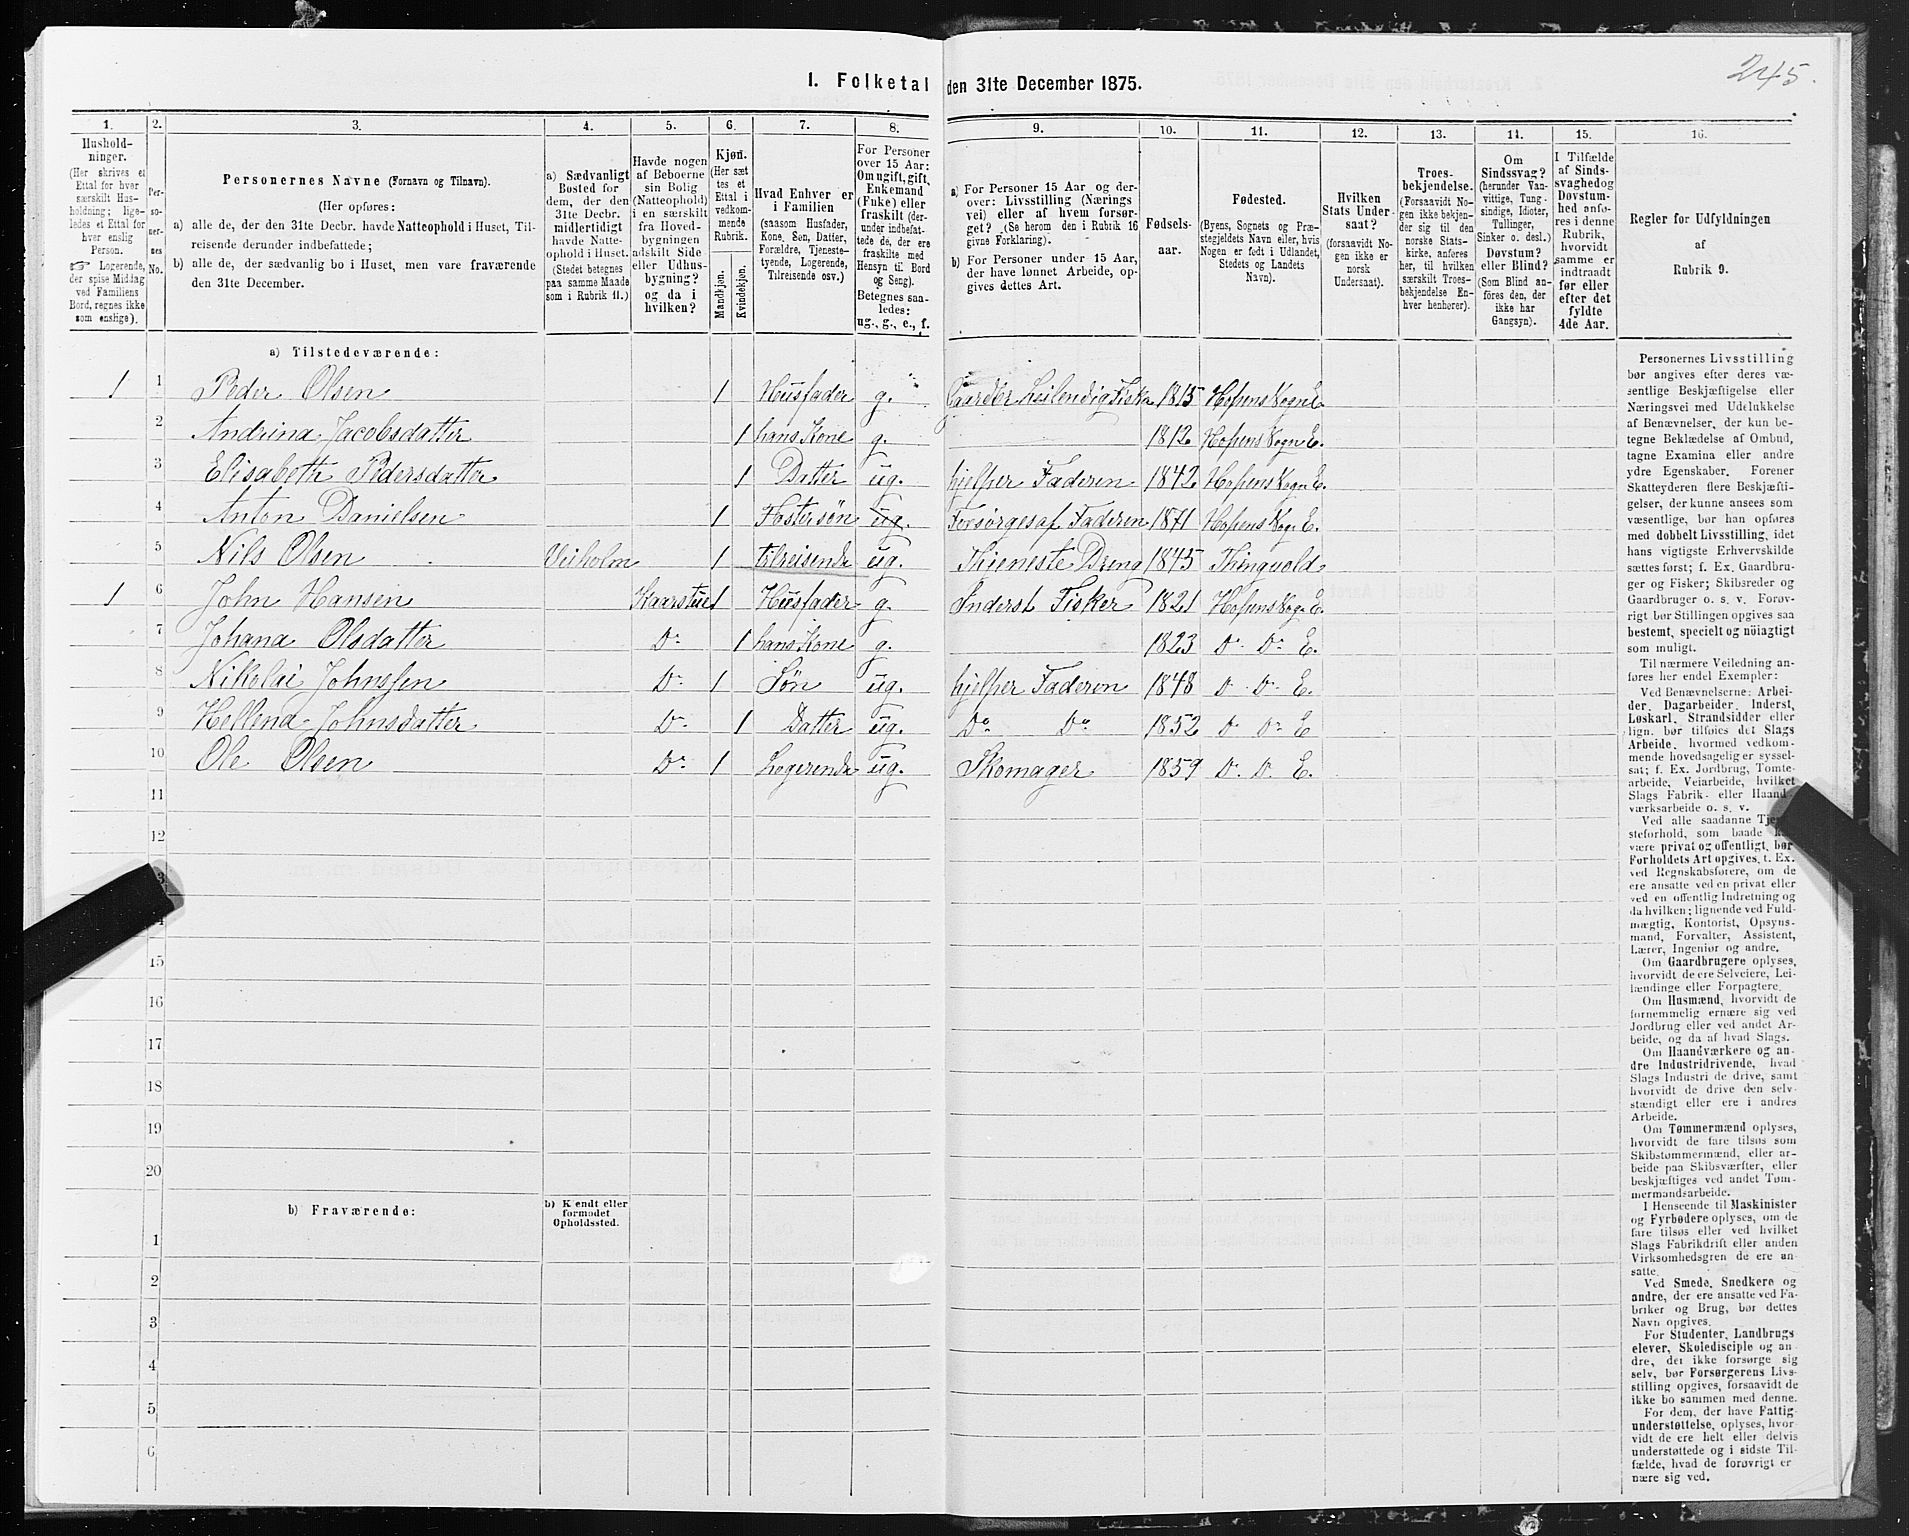 245.
1. Folketal den 31te December 1875.
1. 2. 3. 4. 5. 6. 7. 8. 9. 10. 11. 12. 13. 14. 15. 16.
Husholdninger. (Her skrives et Ettal for hver særskilt Husholdning; ligeledes et Ettal for hver enslig Person. ☞ Logerende, der spise Middag ved Familiens Bord, regnes ikke som enslige).
Personernes No.
Personernes Navne (Fornavn og Tilnavn).
(Her opføres:
a) alle de, der den 31te Decbr. havde Natteophold i Huset, Tilreisende derunder indbefattede;
b) alle de, der sædvanlig bo i Huset, men vare fraværende den 31te December.
a) Sædvanligt Bosted for dem, der den 31te Decbr. midlertidigt havde Natteophold i Huset. (Stedet betegnes paa samme Maade som i Rubrik 11.)
Havde nogen af Beboerne sin Bolig (Natteophold) i en særskilt fra Hovedbygningen adskilt Side- eller Udhusbygning? og da i hvilken?
Kjøn. (Her sættes et Ettal i vedkommende Rubrik.
Mandkjøn. Kvindekjøn.
Hvad Enhver er i Familien (saasom Husfader, Kone, Søn, Datter, Forældre, Tjenestetyende, Logerende, Tilreisende osv.)
For Personer over 15 Aar: Om ugift, gift, Enkemand (Enke) eller fraskilt (derunder indbefattede de, der ere fraskilte med Hensyn til Bord og Seng). Betegnes saaledes: ug., g., e., f.
a) For Personer 15 Aar og derover: Livsstilling (Næringsvei) eller af hvem forsørget? (Se herom den i Rubrik 16 givne Forklaring).
b) For Personer under 15 Aar, der have lønnet Arbeide, opgives dettes Art.
Fødselsaar.
Fødested. (Byens, Sognets og Præstegjeldets Navn eller, hvis Nogen er født i Udlandet, Stedets og Landets Navn).
Hvilken Stats Undersaat? (forsaavidt Nogen ikke er norsk Undersaat).
Troesbekjendelse. (Forsaavidt Nogen ikke bekjender sig til den norske Statskirke, anføres her, til hvilken særskilt Troesbekjendelse Enhver henhører).
Om Sindssvag? (herunder Vanvittige, Tungsindige, Idioter, Tullinger, Sinker o. desl.) Døvstum? eller Blind? (Som Blind anføres den, der ikke har Gangsyn).
I Tilfælde af Sindssvaghed og Døvstumhed anføres i denne Rubrik, hvorvidt samme er indtraadt før eller efter det fyldte 4de Aar.
Regler for Udfyldningen af Rubrik 9.
a) Tilstedeværende:
1 1 Peder Olsen 1 Husfader g. Gaardbr Leilendig Fisker 1815 Hopens Sogn E.
2 Andrina Jacobsdatter 1 hans Kone g. 1812 Hopens Sogn E.
3 Elisabeth Pedersdatter 1 Datter ug. hjelper Faderen 1842 Hopens Sogn E.
4 Anton Danielsen 1 Fostersøn ug. Forsørges af Faderen 1871 Hopens Sogn E.
5 Nils Olsen Veiholm 1 tilreisende ug. Thieneste Dreng 1845 Thingvold
1 6 John Hansen Kaarstue 1 Husfader g. Inderst Fisker 1821 Hopens Sogn E.
7 Johana Olsdatter Do 1 hans Kone g. 1823 D. Do E.
8 Nikolai Johnssen Do 1 Søn ug. hjelper Faderen 1848 D. D. E.
9 Hellena Johnsdatter Do 1 Datter ug. Do Do 1852 D. Do E
10 Ole Olsen Do 1 Logerende ug. Skomager 1859 D. D. E.
11
12
13
15
16
17
18
19
20
b) Fraværende: b) Kendt eller formodet Opholdssted.
1
2
3
4
5
6
Personernes Livsstilling
bør angives efter deres væ-
sentlige Beskjæftigelse eller
Næringsvei med Udelukkelse
af Benævnelser, der kun be-
tegne Beklædelse af Ombud,
tagne Examina eller andre
ydre Egenskaber. Forener
Skatteyderen flere Beskjæfti-
gelser, der kunne ansees som
væsentlige, bør han opføres
med dobbelt Livsstilling, idet
hans vigtigste Erhvervskilde
sættes først; f. Ex. Gaardbru-
ger og Fisker; Skibsreder og
Gaardbruger o. s. v. Forøv-
rigt bør Stillingen opgives saa
bestemt, specielt og nøiagtigt
som muligt.
Til nærmere Veiledning an-
føres her endel Exempler:
Ved Benævnelserne: Arbei-
der, Dagarbeider, Inderst,
Løskarl, Strandsidder eller
lign. bør tilføies det Slags
Arbeide, hvormed vedkom-
mende hovedsagelig er syssel-
sat; f. Ex. Jordbrug, Tomte-
arbeide, Veiarbeide, hvilket
Slags Fabrik- eller Haand-
værksarbeide o. s. v.
Ved alle saadanne Tjene-
steforhold, som baade kan
være privat og offentligt, bør
Forholdets Art opgives, t. Ex.
ved Regnskabsførere, om de
ere ansatte ved en privat eller
ved en offentlig Indretning og
da hvilken; lignende ved Fuld-
mægtig, Kontorist, Opsyns-
mand, Forvalter, Assistent,
Lærer, Ingeniør og andre.
Om Gaardbrugere oplyses,
hvorvidt de ere Selveiere, Lei-
lændinge eller Forpagtere.
Om Husmænd, hvorvidt de
fornemmelig ernære sig ved
Jordbrug eller ved andet Ar-
beide, og da af hvad Slags.
Om Haandværkere og an-
dre Industridrivende, hvad
Slags Industri de drive, samt
hvorvidt de drive den selv-
stændigt eller ere i andres
Arbeide.
Om Tømmermænd oplyses,
hvorvidt de fare tilsøs som
Skibstømmermænd, eller ar-
beide paa Skibsværfter, eller
beskjæftiges ved andet Tøm-
mermandsarbeide.
I Henseende til Maskinister
og Fyrbødere oplyses, om de
fare tilsøs eller ved hvilket
Slags Fabrikdrift eller anden
Virksomhedsgren de ere an-
satte.
Ved Smede, Snedkere og
andre, der ere ansatte ved Fa-
briker og Brug, bør dettes
Navn opgives.
For Studenter, Landbrugs
elever, Skoledisciple og an-
dre, der ikke forsørge sig
selv, bør Forsørgerens Livs-
stilling opgives, forsaavidt de
ikke bo sammen med denne.
For dem, der have Fattig-
understøttelse, oplyses, hvor-
vidt de ere helt eller delvis
understøttede og i sidste Til-
fælde, hvad de forøvrigt er-
nære sig ved.